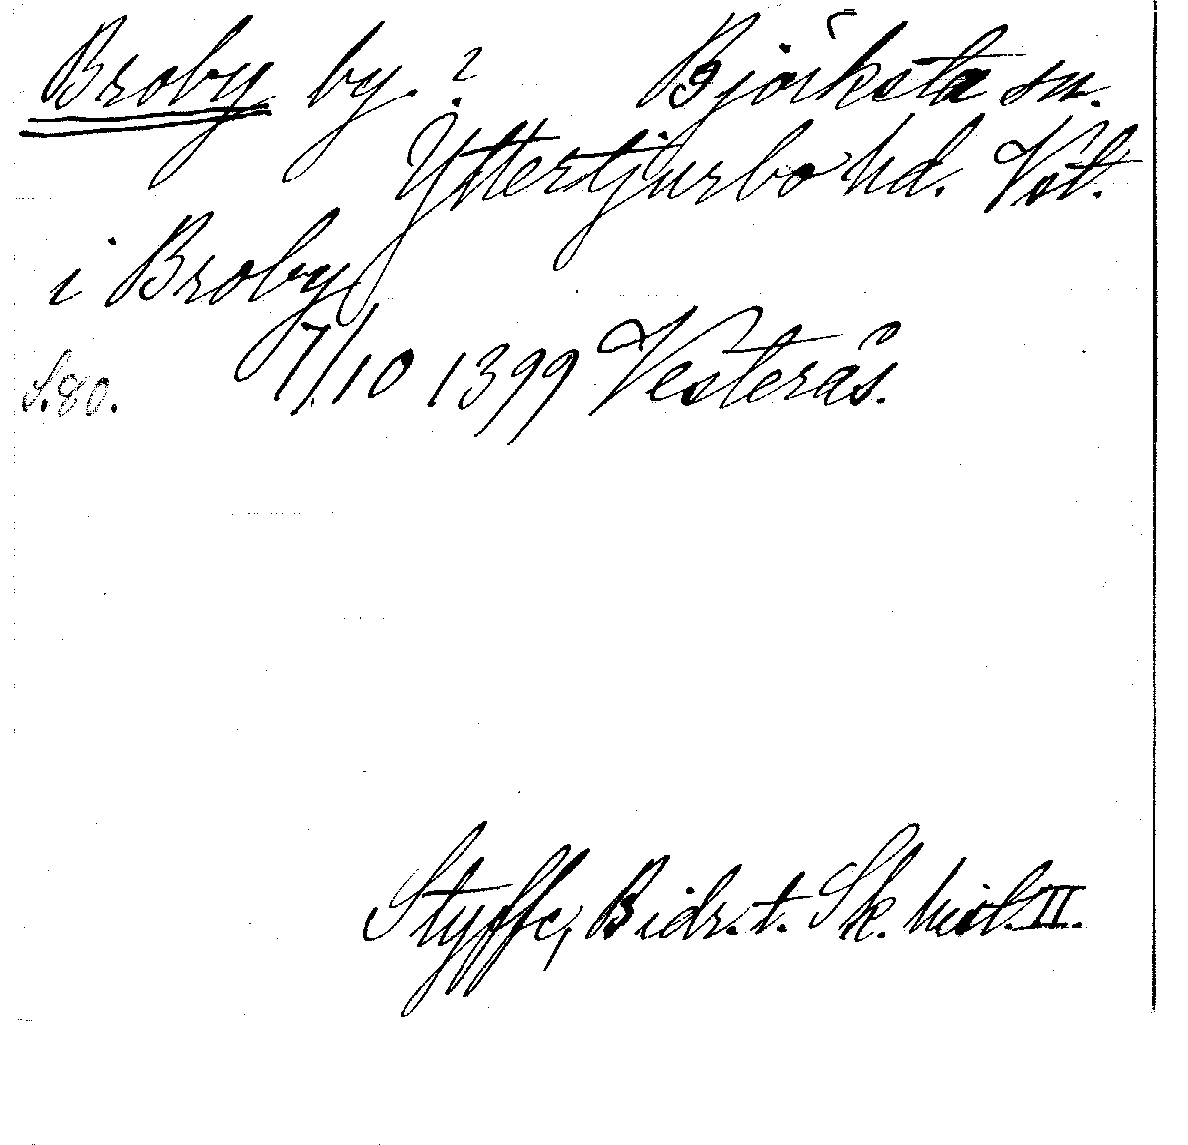 Broby by.? Björksta sn.
Yttertjurbo hd. Vst.
i Broby
7/10 1399 Vesterås.
S. 80.
Styffe, Bidr. t. Sk. hist. II.